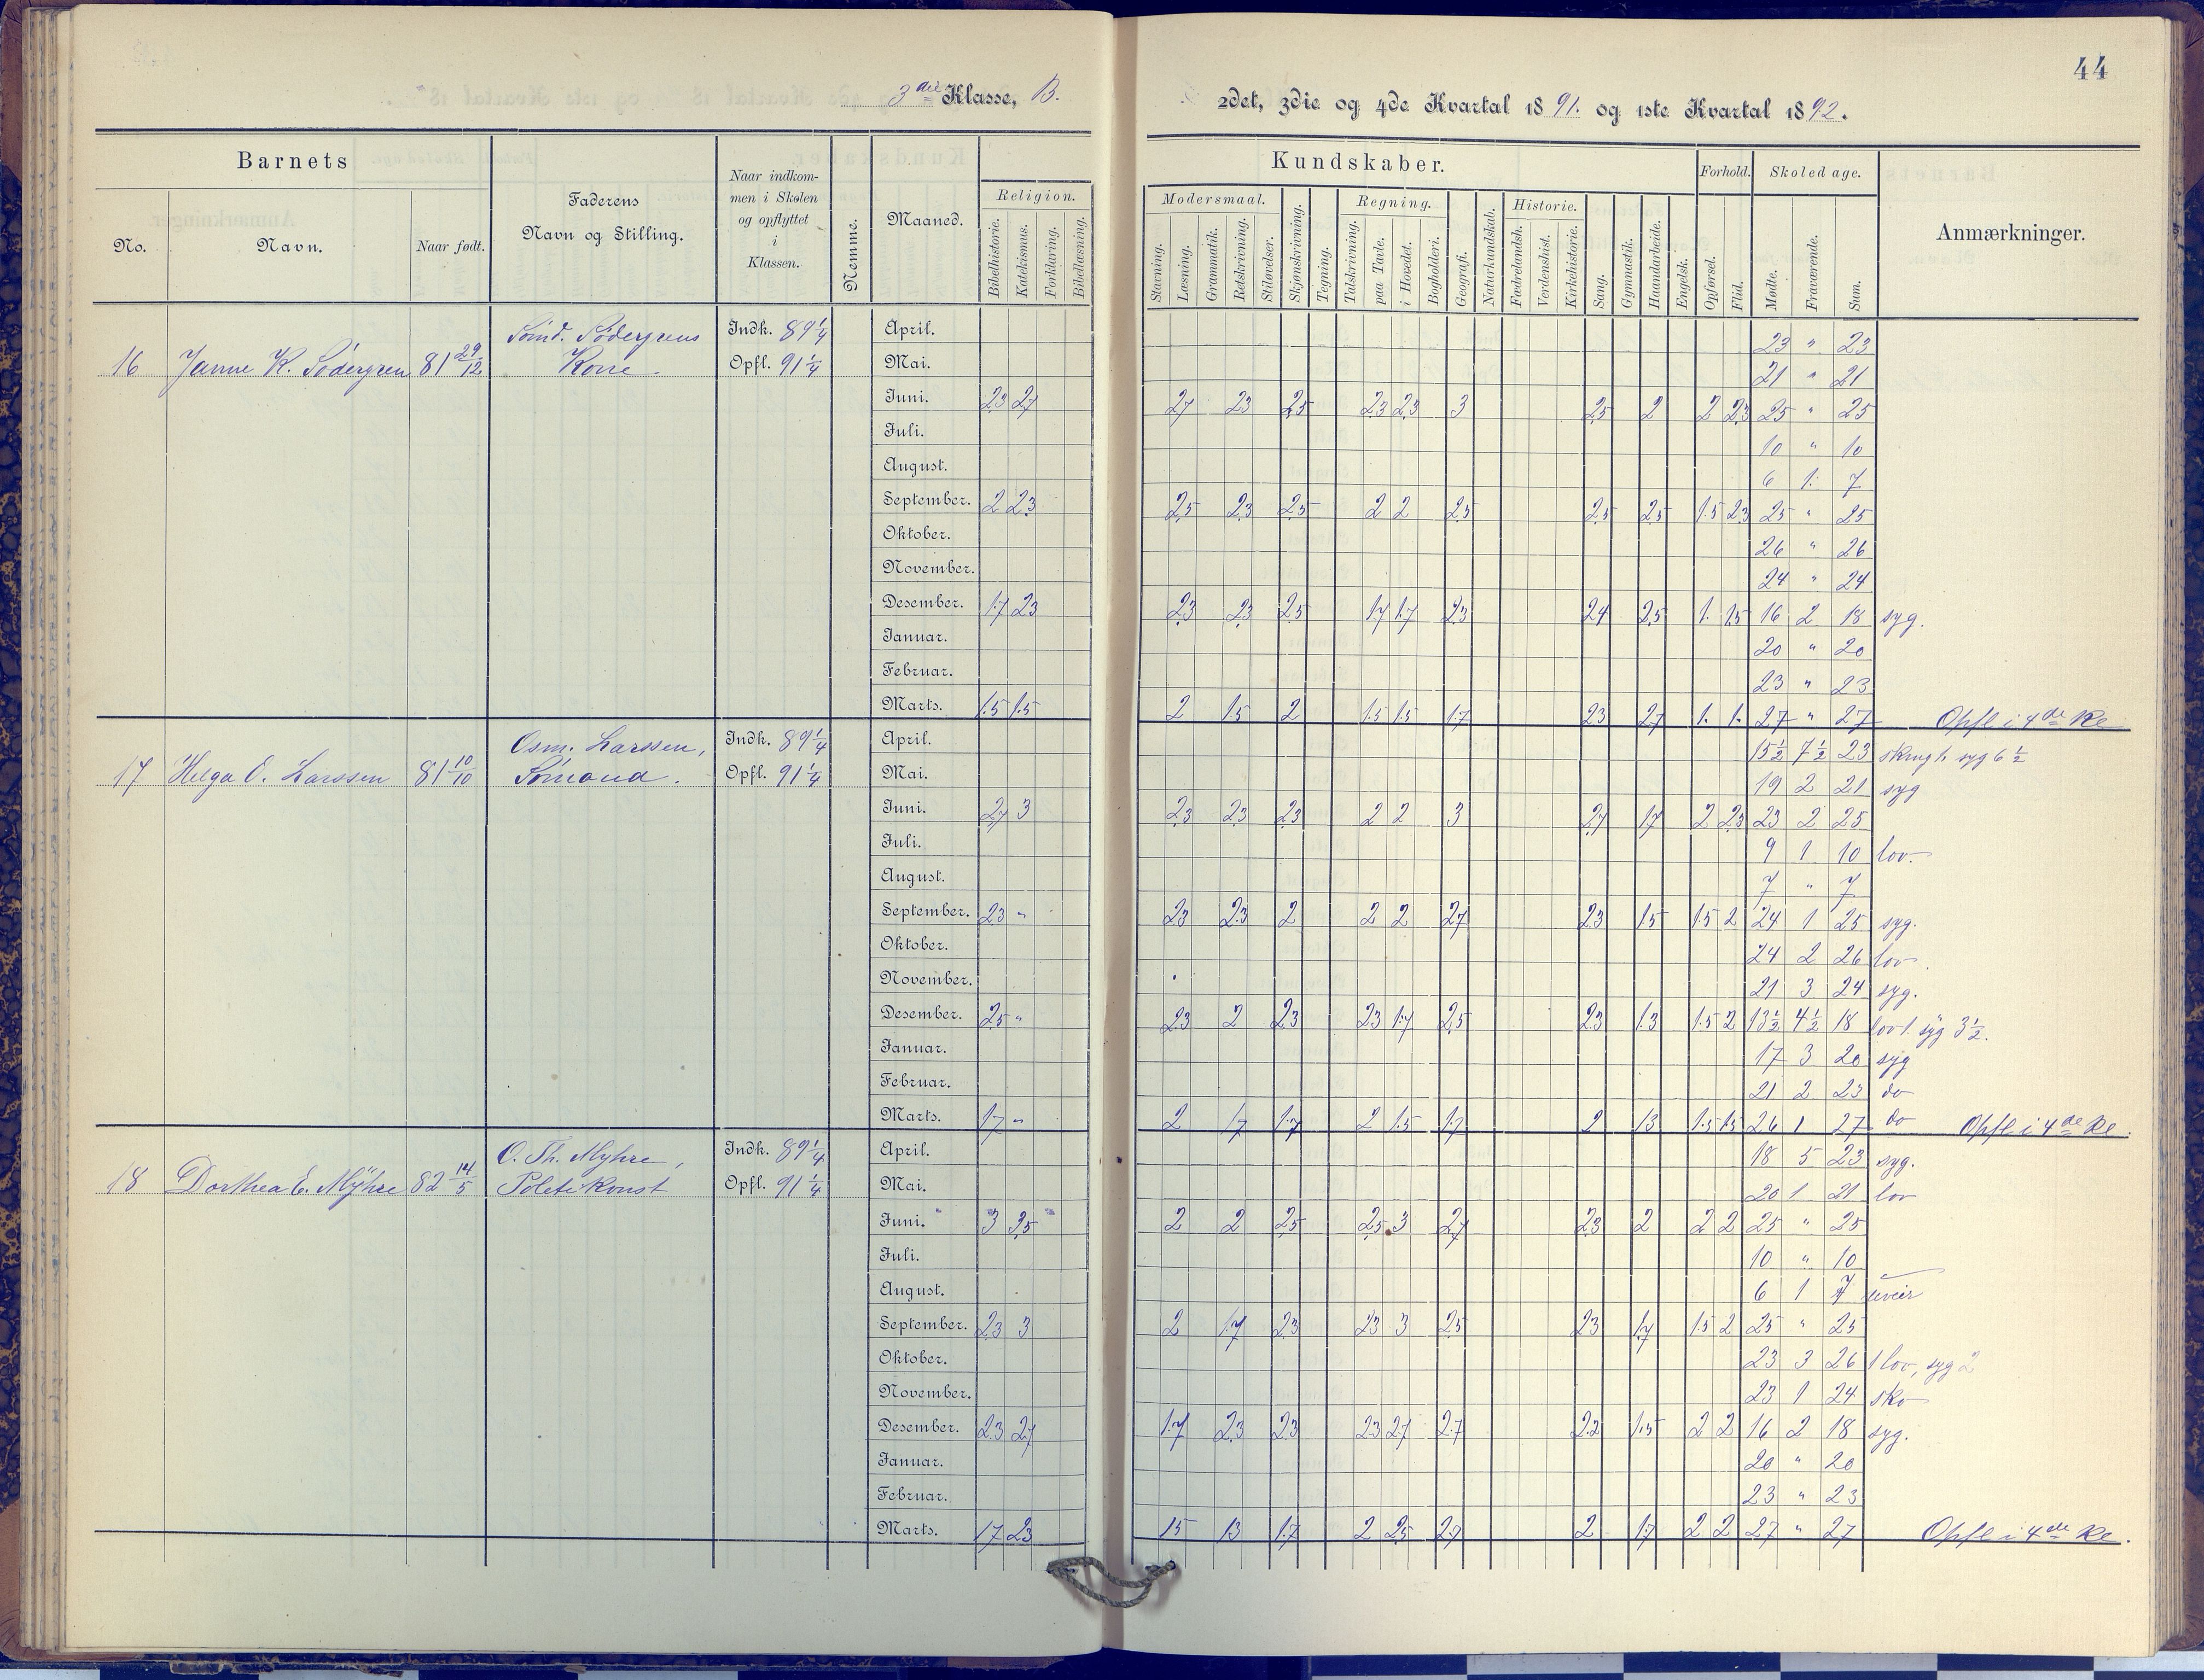 44
3die Klasse, B.
2det, 3die og 4de Kvartal 1891. og 1ste Kvartal 1892.
Barnets
No.
Navn.
Naar født.
Faderens
Navn og Stilling.
Naar indkom-
men i Skolen
og opflyttet
i
Klassen.
Nemme.
Maaned.
Kundskaber.
Religion.
Bibelhistorie.
Katekismus.
Forklaring.
Bibellæsning.
Modersmaal.
Stavning.
Læsning.
Grammatik.
Retskrivning.
Stiløvelser.
Skjønskrivning.
Tegning.
Regning.
Talskrivning.
paa Tavle.
i Hovedet.
Bogholderi.
Geografi.
Naturkundskab.
Historie.
Fædrelandsh.
Verdenshist.
Kirkehistorie.
Sang.
Gymnastik.
Haandarbeide.
Engelsk.
Forhold.
Opførsel.
Flid.
Skoledage.
Mødte.
Fraværende.
Sum.
Anmærkninger.
16 Janne K. Södergren 81 29/12
Sömd. Södergrens
Kone
Indk. 89 1/4
Opfl. 91 1/4
April. 23 " 23
Mai. 21 " 21
Juni. 2.3 2.7 2.7 2.3 2.5 2.3 2.3 3 2.5 2 2 2.3 25 " 25
Juli. 10 " 10
August. 6 1. 7
September. 2 2.3 2.5 2.3 2.5 2 2 2.5 2.5 2.5 1.5 2.3 25 " 25
Oktober. 26 " 26
November. 24 " 24
Desember. 1.7 2.3 2.3 2.3 2.5 1.7 1.7 2.3 2.4 2.5 1. 1.5 16 2 18 syg.
Januar. 20 " 20
Februar. 23 " 23
Marts. 1.5 1.5 2 1.5 2 1.5 1.5 1.7 2.3 2.7 1. 1. 27 " 27 Opfl i 4de Kl
17 Helga O. Larssen 81 10/10
Osm. Larssen,
Sömand.
Indk. 89 1/4
Opfl. 91 1/4
April. 15 1/2 7 1/2 23 syg 6 1/2
Mai. 19 2 21 syg
Juni. 2.7 3 2.3 2.3 2.3 2 2 3 2.7 1.7 2 2.3 23 2 25
Juli. 9 1 10 lov.
August. 7 " 7
September. 2.3 " 2.3 2.3 2 2 2 2.7 2.3 1.5 1.5 2 24 1 25 syg.
Oktober. 24 2 26 lov.
November. 21 3 24 syg.
Desember. 2.5 " 2.3 2 2.3 2.3 1.7 2.5 2.3 1.3 1.5 2 13 1/2 4 1/2 18 lov 1. syg 3 1/2.
Januar. 17 3 20 syg
Februar. 21 2 23 do
Marts. 1.7 " 2 1.7 1.7 2 1.5 1.7 2 1.3 1.5 1.5 26 1 27 do Opfl i 4de Kl.
18 Dorthea E. Mÿhre 82 14/5
O. Th. Myhre,
Politikonst
Indk. 89 1/4
Opfl. 91 1/4
April. 18 5 23 syg.
Mai. 20 1 21 lov
Juni. 3 3.5 2 2 2.5 2.5 3 2.7 2.3 2 2 2 25 " 25
Juli. 10 " 10
August. 6 1 7 uveir
September. 2.3 3 2 1.7 2.3 2.3 3 2.5 2.3 1.7 1.5 2 25 " 25
Oktober. 23 3 26 1 lov, syg 2
November. 23 1 24 sko
Desember. 2.3 2.7 1.7 2.3 2.3 2.3 2.7 2.7 2.2 1.5 2 2 16 2 18 syg.
Januar. 20 " 20
Februar. 23 " 23
Marts. 1.7 2.3 1.5 1.3 1.7 2 2.5 2.7 2 1.7 2 2 27 " 27 Opfl i 4de Kl.